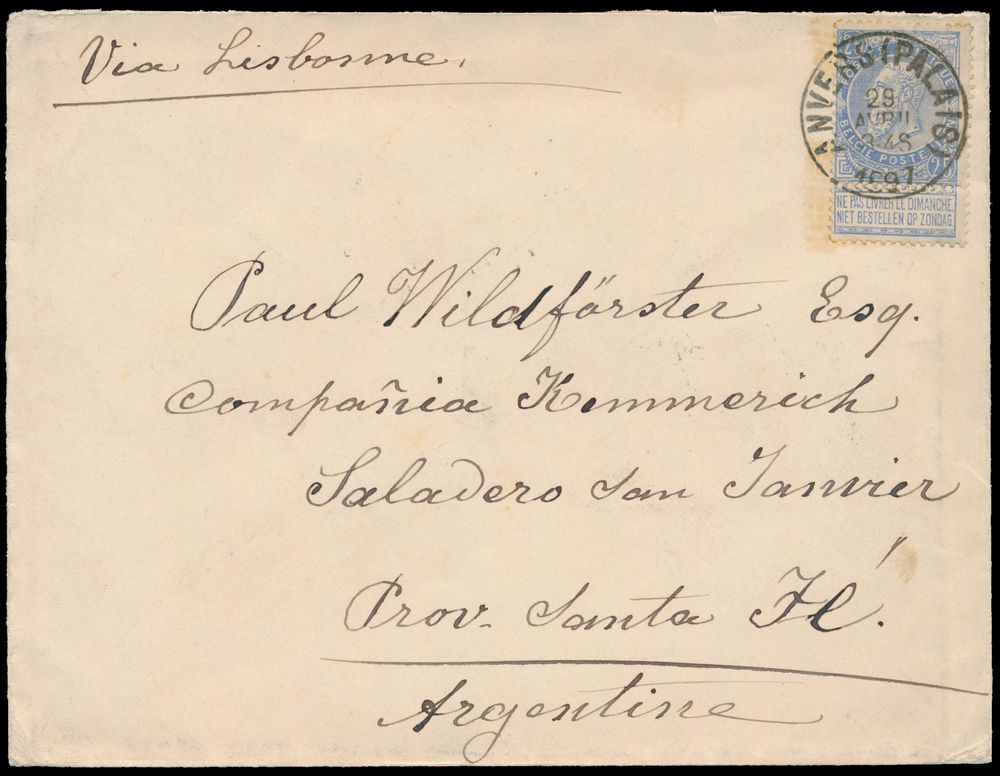 Via Lisbonne.
ANVERS (PALAIS)
29
AVRIL
3-4S
1897
BELGIE POSTE
25
NE PAS LIVRER LE DIMANCHE
NIET BESTELLEN OP ZONDAG
Paul Wildförster Esq.
Compañia Kemmerich
Saladero San Janvier
Prov. Santa Fé.
Argentine